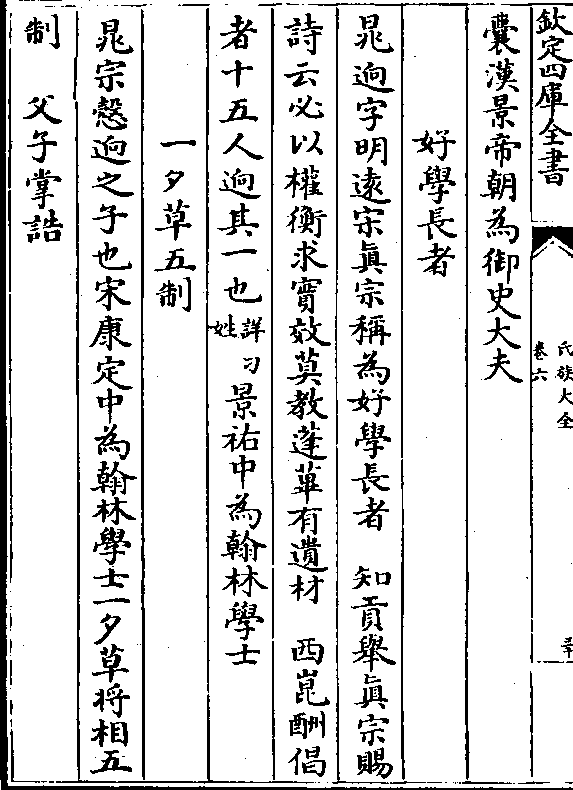 欽定四庫全書
氏族大全
卷六
囊漢景帝朝為御史大夫
好學長者
晁逈字明逺宗真宗稱為好學長者　知貢舉真宗賜
詩云必以權衡求實效莫教蓬蓽有遺材　西崑酬倡
者十五人逈其一也詳刁姓　景祐中為翰林學士
一夕草五制
晁宗慤逈之子也宋康定中為翰林學士一夕草将相五
制　父子掌誥